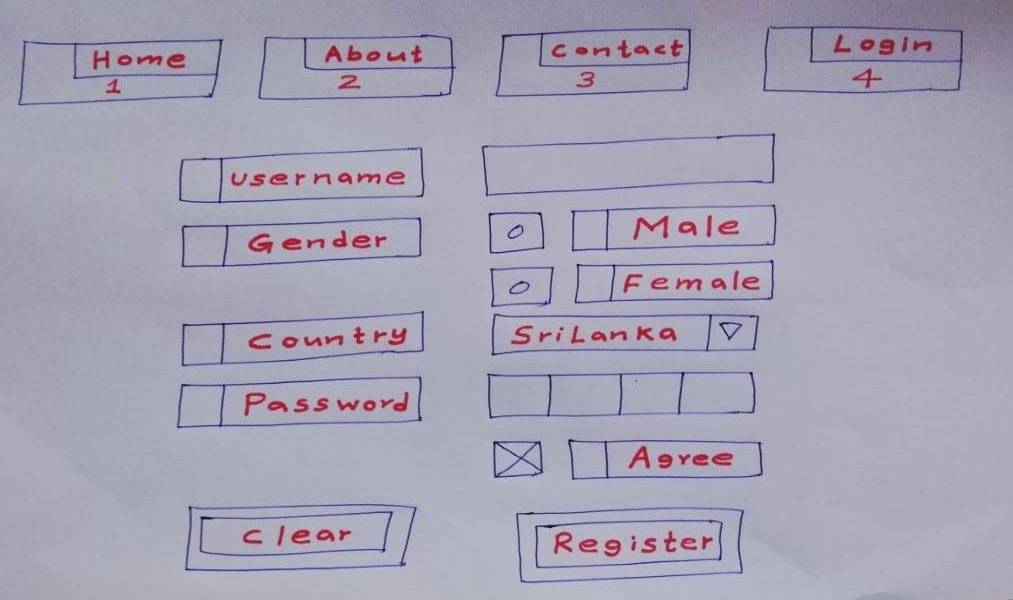 Home About Contact Login
1 2 3 4
username
Gender Male
Female
Country SriLanka
Password
Agree
Clear Register